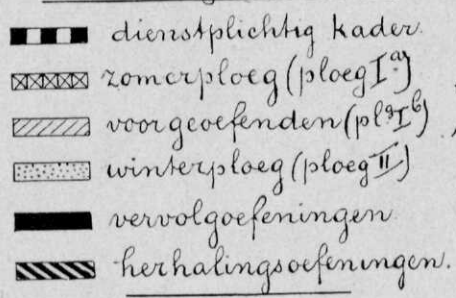 dienstplichtig kader.
zomerploeg (ploeg Iᵃ⁾)
voorgeoefenden (plᵍ Iᵇ)
winterploeg (ploeg II)
vervolgoefeningen
herhalingsoefeningen.